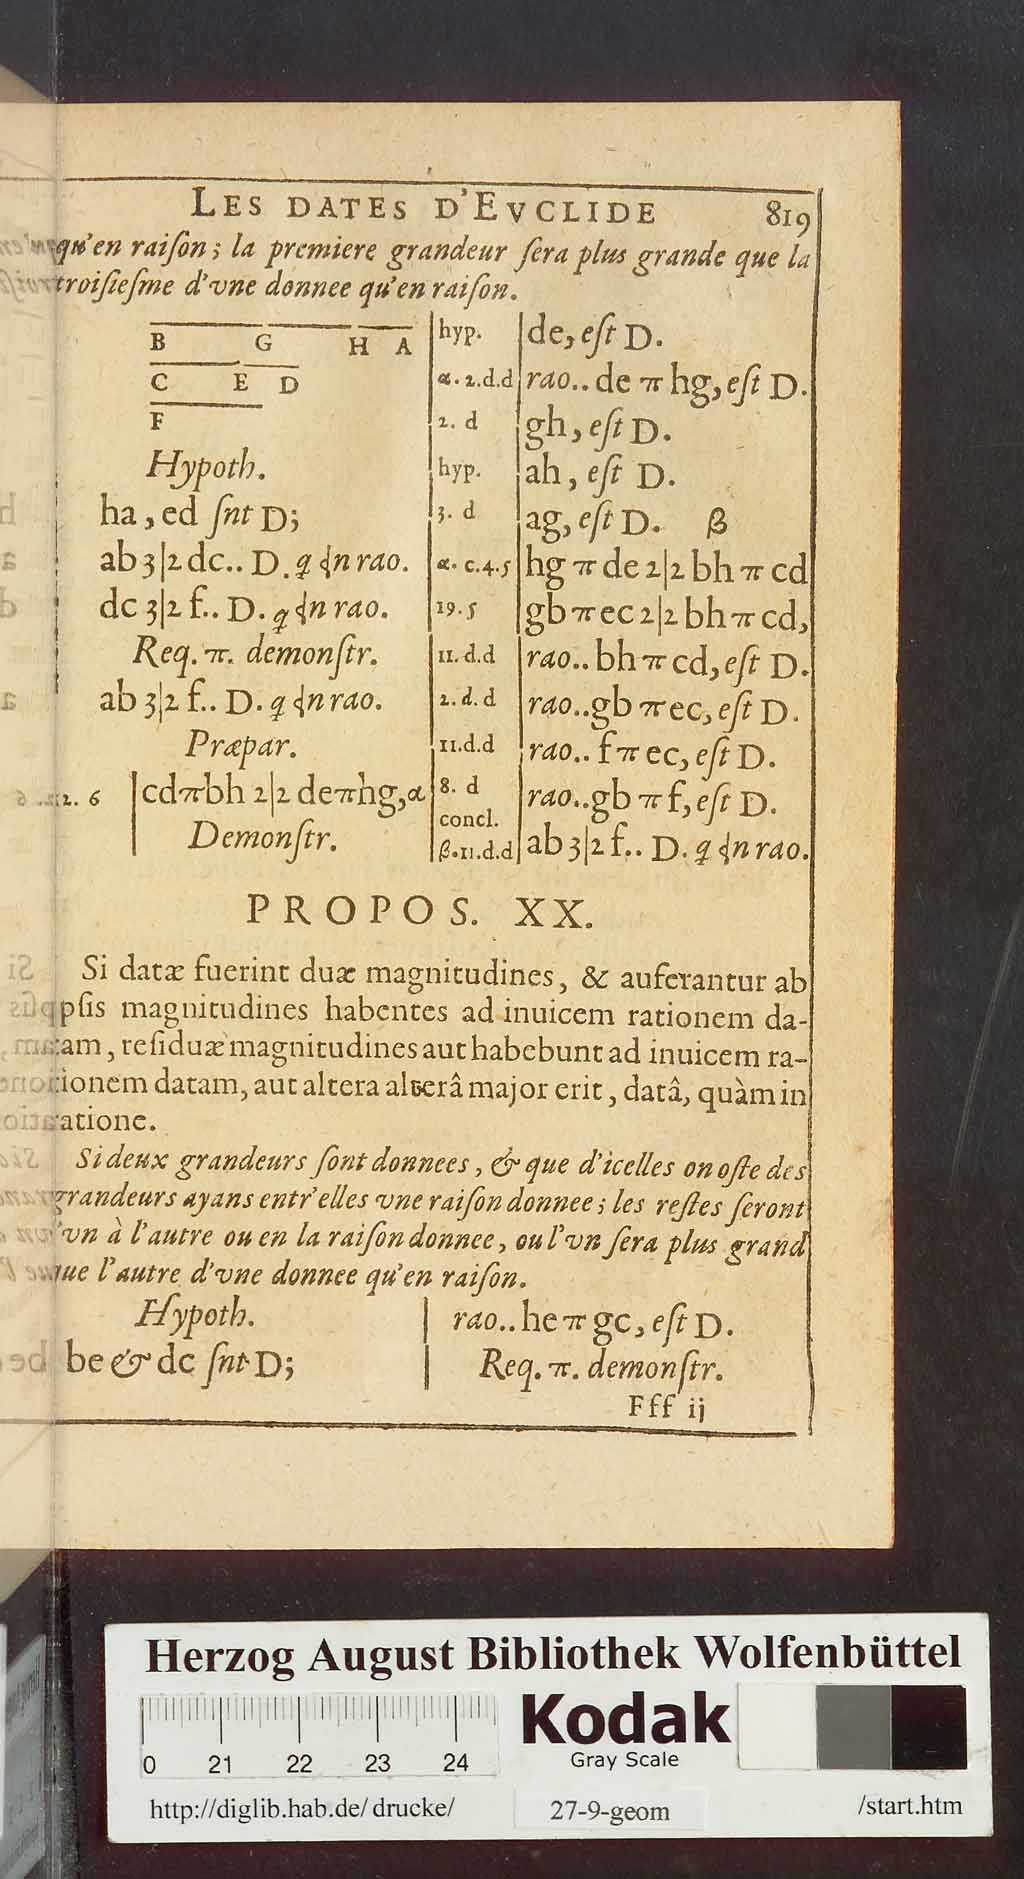 LES DATES D'EVCLIDE 819
qu'en raiſon; la premiere grandeur ſera plus grande que la
troiſieſme d'vne donnee qu'en raiſon.
B G H A
C E D
F
Hypoth.
ha, ed ſnt D;
ab 3|2 dc.. D. q̃ ⟨n rao.
dc 3|2 f.. D. q̃ ⟨n rao.
Req. π. demonſtr.
ab 3|2 f.. D. q̃ ⟨n rao.
Præpar.
12. 6 | cd π bh 2|2 de π hg, α
Demonſtr.
hyp. | de, eſt D.
α. 2.d.d | rao.. de π hg, eſt D.
2. d | gh, eſt D.
hyp. | ah, eſt D.
3. d | ag, eſt D. β
α. c.4.5 | hg π de 2|2 bh π cd
19.5 | gb π ec 2|2 bh π cd,
11.d.d | rao.. bh π cd, eſt D.
2.d.d | rao.. gb π ec, eſt D.
11.d.d | rao.. f π ec, eſt D.
8. d | rao.. gb π f, eſt D.
concl.
β.11.d.d | ab 3|2 f.. D. q̃ ⟨n rao.
PROPOS. XX.
Si datæ fuerint duæ magnitudines, & auferantur ab
ipſis magnitudines habentes ad inuicem rationem da-
tam, reſiduæ magnitudines aut habebunt ad inuicem ra-
tionem datam, aut altera alterâ major erit, datâ, quàm in
ratione.
Si deux grandeurs ſont donnees, & que d'icelles on oſte des
grandeurs ayans entr'elles vne raiſon donnee; les reſtes ſeront
l'vn à l'autre ou en la raiſon donnee, ou l'vn ſera plus grand
que l'autre d'vne donnee qu'en raiſon.
Hypoth.
be & dc ſnt D;
rao.. he π gc, eſt D.
Req. π. demonſtr.
Fff ij
Herzog August Bibliothek Wolfenbüttel
0 21 22 23 24
Kodak
Gray Scale
http://diglib.hab.de/drucke/ 27-9-geom /start.htm